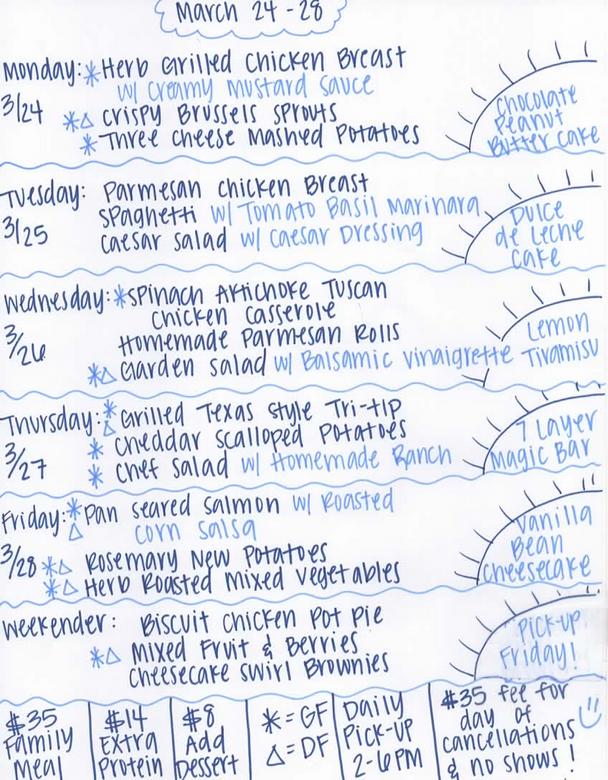 March 24-28
Monday: *Herb Grilled Chicken Breast
w/ Creamy Mustard Sauce
3/24
*△ Crispy Brussels Sprouts
* Three Cheese Mashed Potatoes
Chocolate
Peanut
Butter Cake
Tuesday: Parmesan Chicken Breast
3/25
Spaghetti w/ Tomato Basil Marinara
Caesar Salad w/ Caesar Dressing
Dulce
de Leche
Cake
Wednesday: *Spinach Artichoke Tuscan
Chicken Casserole
3/26
Homemade Parmesan Rolls
*△ Garden Salad w/ Balsamic Vinaigrette
Lemon
Tiramisu
Thursday: *△ Grilled Texas Style Tri-tip
3/27
* Cheddar Scalloped Potatoes
* Chef Salad w/ Homemade Ranch
7 Layer
Magic Bar
Friday: *△ Pan Seared Salmon w/ Roasted
Corn Salsa
3/28
*△ Rosemary New Potatoes
*△ Herb Roasted Mixed Vegetables
Vanilla
Bean
Cheesecake
Weekender: Biscuit Chicken Pot Pie
*△ Mixed Fruit & Berries
Cheesecake Swirl Brownies
Pick-up
Friday!
$35
Family
Meal
$14
Extra
Protein
$8
Add
Dessert
* = GF
△ = DF
Daily
Pick-up
2-6PM
$35 fee for
day of
cancellations
& no shows!